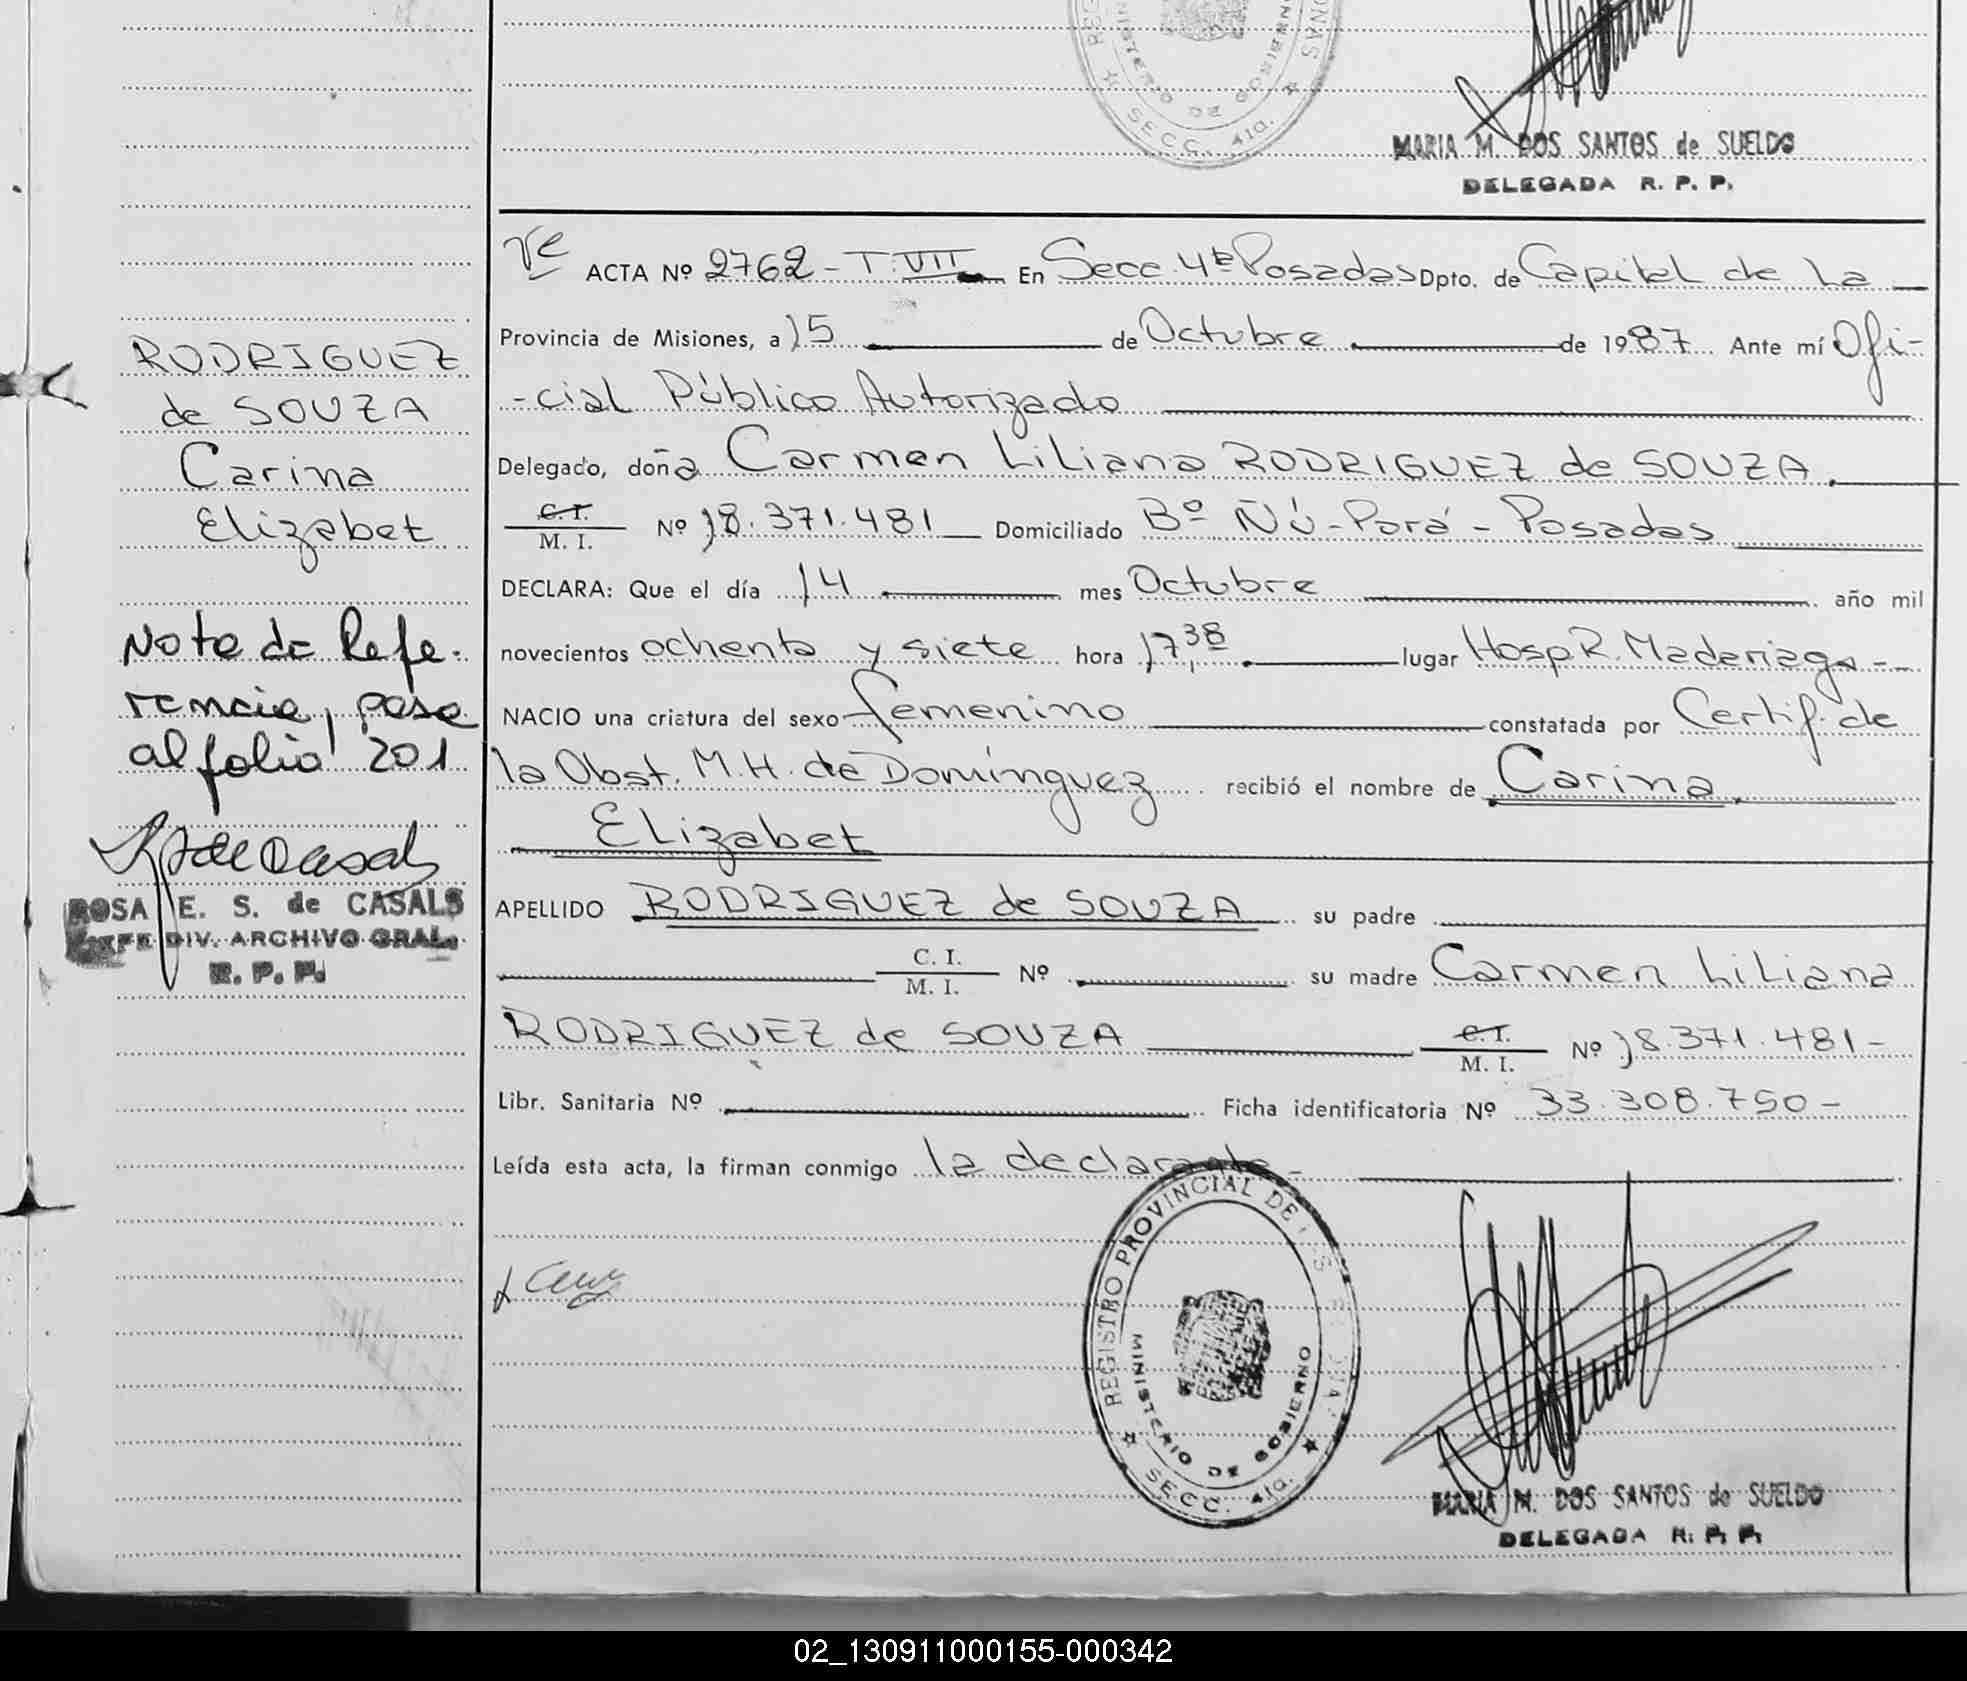 REG ONAS
MINISTERIO DE GOBIERNO
SECC. 4ta.
MARIA M. DOS SANTOS de SUELDO
DELEGADA R. P. P.
ACTA Nº 2762 - T. VII En Secc. 4ta Posadas Dpto. de Capital de la
Provincia de Misiones, a 15 de Octubre de 1987. Ante mí Ofi-
-cial Público Autorizado
Delegado, doña Carmen Liliana RODRIGUEZ de SOUZA.
C. I.
M. I. Nº 18.371.481 Domiciliado Bº Ñú-Porá - Posadas
DECLARA: Que el día 14 mes Octubre año mil
novecientos ochenta y siete hora 17,38 lugar Hosp R. Madariaga --
NACIO una criatura del sexo femenino constatada por Certif. de
la Obst. M.H. de Domínguez recibió el nombre de Carina
Elizabet
APELLIDO RODRIGUEZ de SOUZA su padre
C. I.
M. I. Nº su madre Carmen Liliana
RODRIGUEZ de SOUZA C. I.
M. I. Nº 18.371.481-
Libr. Sanitaria Nº Ficha identificatoria Nº 33.308.750-
Leída esta acta, la firman conmigo la declarante-
RODRIGUEZ
de SOUZA
Carina
Elizabet
Nota de Refe-
rencia, pasa
al folio 201
ROSA E. S. de CASALS
JEFE DIV. ARCHIVO GRAL.
R. P. P.
REGISTRO PROVINCIAL DE LAS PERSONAS
MINISTERIO DE GOBIERNO
SECC. 4ta.
MARIA M. DOS SANTOS de SUELDO
DELEGADA R. P. P.
02_130911000155-000342